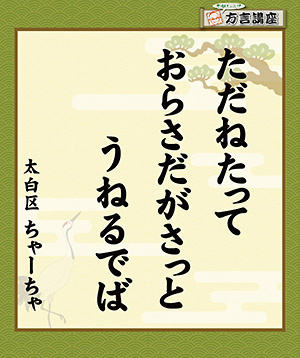 方言講座
ただねたって
おらさだがさっと
うねるでば
太白区 ちゃーちゃ